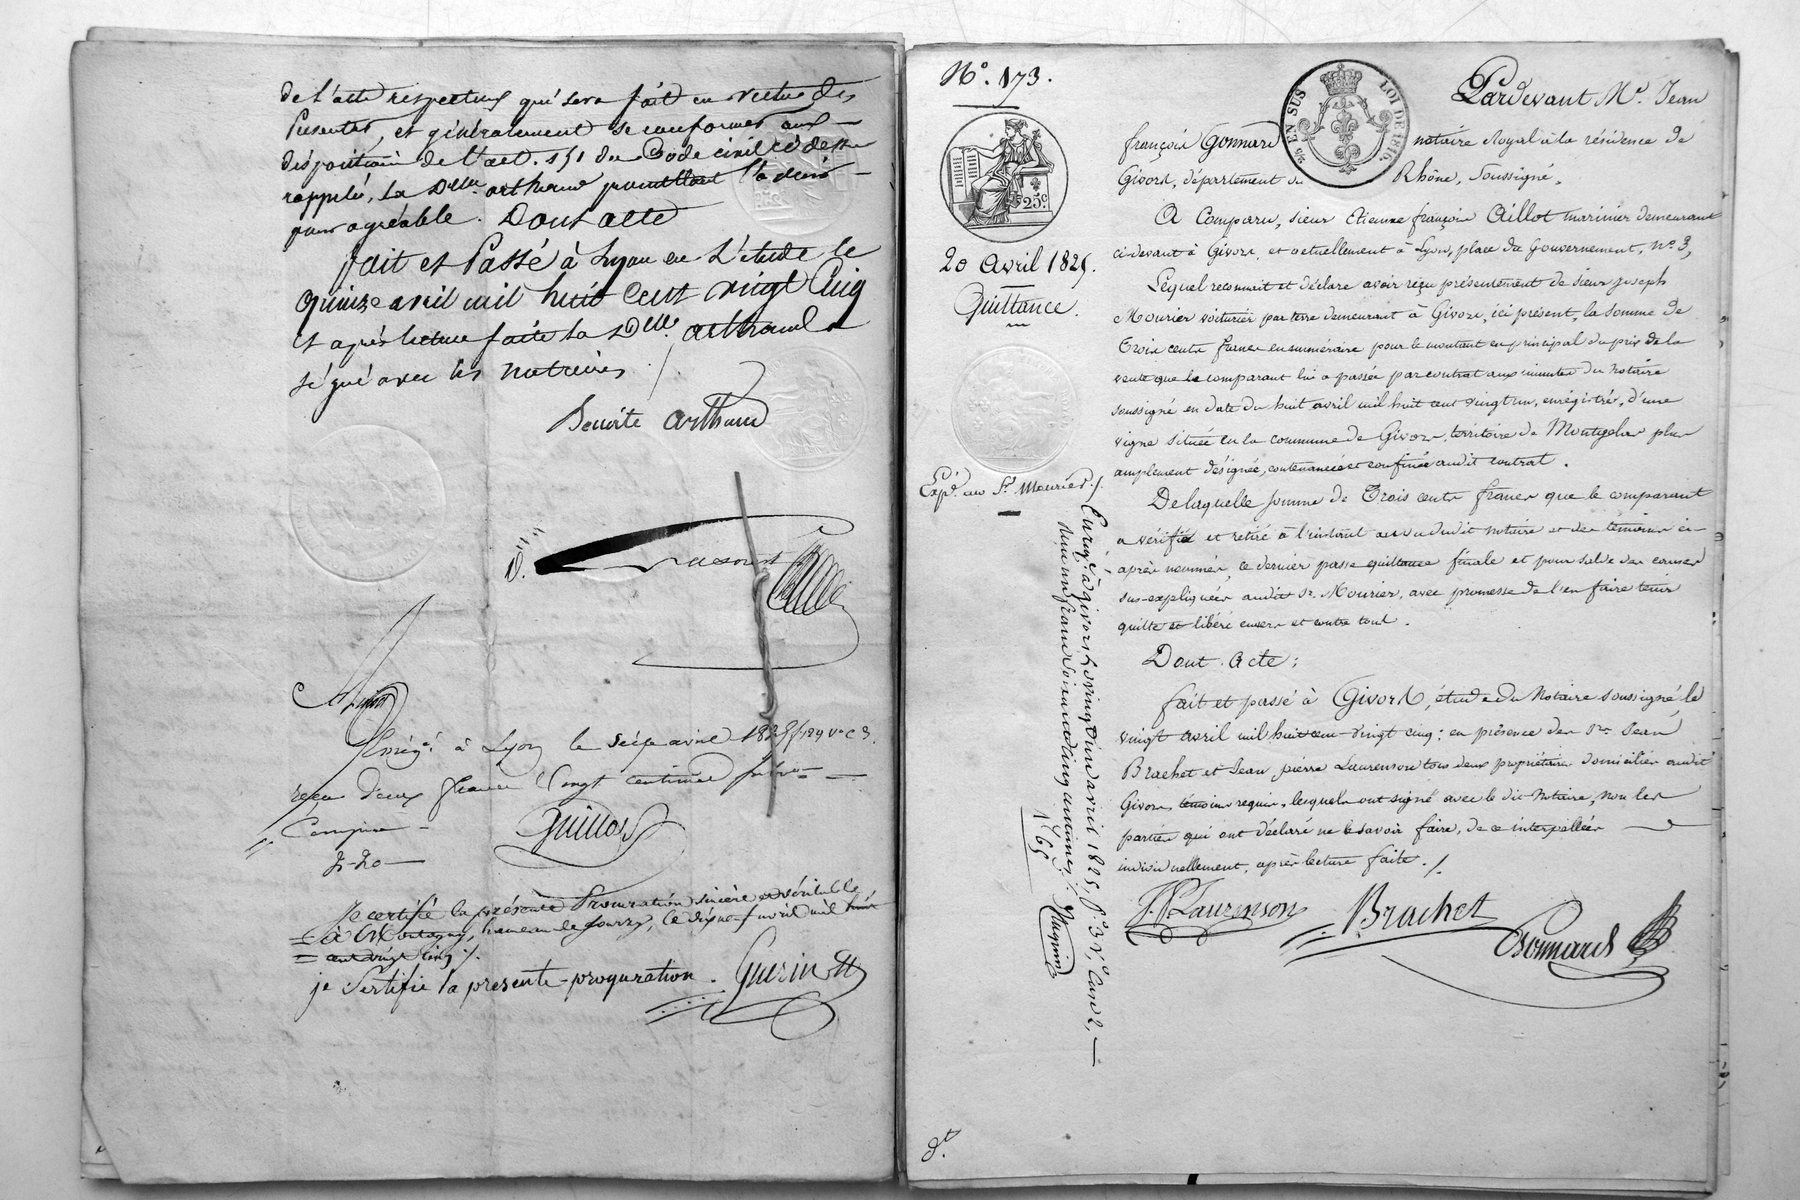 de l'acte respectueux qui sera fait en vertu des
Présentes, et généralement se conformer aux
dispositions de l'art. 151 du Code civil ci dessus
rappelé, la Dlle arthaud promettant l'avoir
pour agréable. Dont acte
fait et Passé à Lyon en L'étude le
quinze avril mil huit cent vingt Cinq
et après lecture faite la Dlle arthaud a
signé avec les notaires
Benoite arthaud
Enregé à Lyon le seize avril 1825 f 129 Vo C 3.
reçu deux francs Vingt centimes
Compris
2-20
Guillot
Je certifie la présente Procuration sincère et véritable
à Montagny, hameau de Sourzy, le dix neuf avril mil huit
cent vingt cinq
je Sertifie la presente proquration. Guerin
No. 173.
20 Avril 1825.
Quittance.
25c
Expd. au Sr. Mourier
EN SUS
LOI DE 1816
Pardevant Me. Jean
françois Gonnard notaire Royal à la résidence de
Givors, département du Rhône, Soussigné,
A Comparu, sieur Etienne françois Aillot marinier demeurant
ci-devant à Givors, et actuellement à Lyon, place du Gouvernement, No. 3,
Lequel reconnait et déclare avoir reçu présentement de sieur joseph
Mourier voiturier par terre demeurant à Givors, ici présent, la somme de
Trois cents francs en numéraire pour le montant en principal du prix de la
vente que le comparant lui a passée par contrat aux minutes du Notaire
soussigné en date du huit avril mil huit cent vingt un, enregistrés, d'une
vigne située en la commune de Givors, territoire de Montgelas plus
amplement désignée, contenancée et confinée audit contrat.
De laquelle somme de Trois cents francs que le comparant
a vérifié et retiré à l'instant au vu dudit notaire et des témoins ci-
après nommés, ce dernier passe quittance finale et pour solde des causes
sus-expliquées audit Sr. Mourier, avec promesse de l'en faire tenir
quitte et libéré envers et contre tout.
Dont Acte:
fait et passé à Givors, étude du Notaire soussigné, le
vingt avril mil huit cent vingt cinq: en présence des Srs. Jean
Brachet et Jean pierre Laurenson tous deux propriétaires domiciliés audit
Givors, témoins requis, lesquels ont signé avec le dit Notaire, non les
parties qui ont déclaré ne le savoir faire, de ce interpellées
individuellement, après lecture faite.
J.P. Laurenson Brachet Gonnard
Enregé à givors le vingt un avril 1825, fo 3 Vo Case 2,
reçu un franc soixante cinq centimes
1f65c